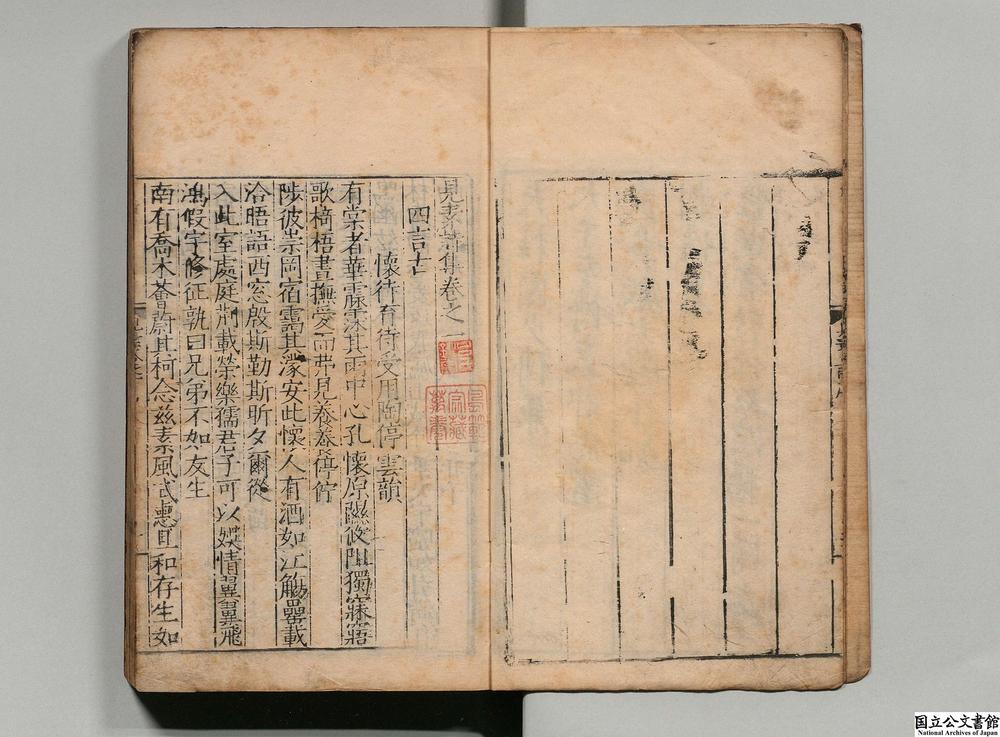 見素詩集卷之一
四言古
懷待育待受用陶停雲韻
有棠者華霖霖其雨中心孔懷原隰攸阻獨寐寤
歌梧晝撫爰而弗見養養停佇
陟彼崇岡宿靄其濛安此懷人有酒如江觴罍載
洽晤語西窓殷斯勤斯昕夕爾從
入此室處庭荊載榮樂孺君子可以娛情翼翼飛
鴻假字修征孰曰兄弟不如友生
南有喬木薈蔚其柯念茲素風式惠且和存生如
国立公文書館
National Archives of Japan